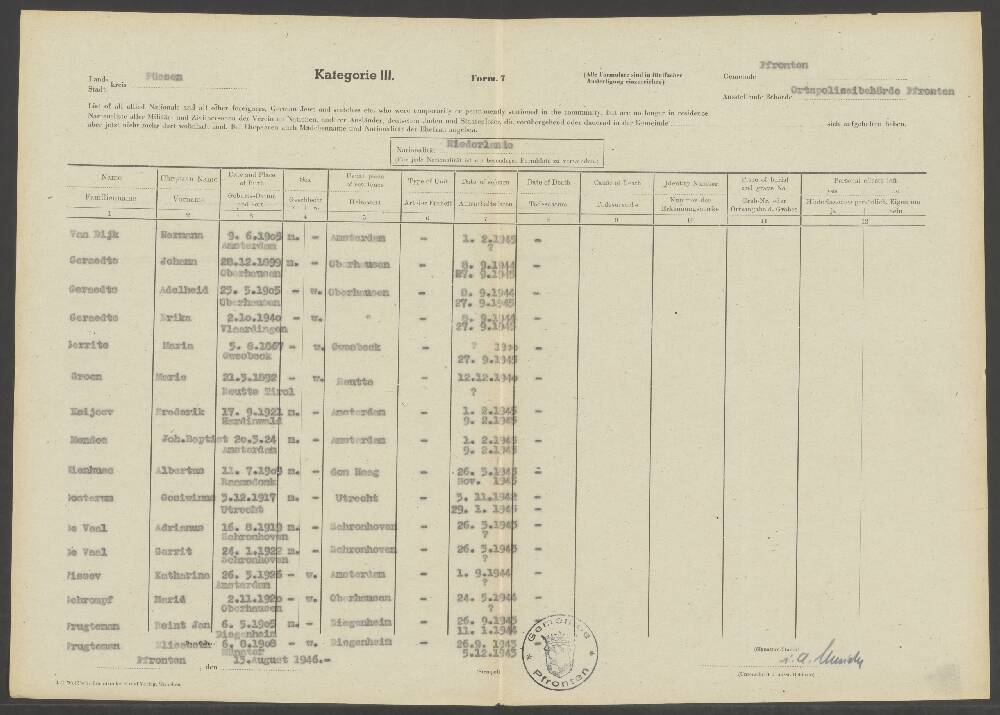 Land-
Stadt- kreis Füssen
Kategorie III.
Form. 7
(Alle Formulare sind in fünffacher
Ausfertigung einzureichen)
Gemeinde Pfronten
Ausstellende Behörde Ortspolizeibehörde Pfronten
List of all allied Nationals and all other foreigners, German Jews and stateless etc. who were temporarily or permanently stationed in the community, but are no longer in residence.
Namensliste aller Militär- und Zivilpersonen der Vereinten Nationen, anderer Ausländer, deutscher Juden und Staatenloser, die vorübergehend oder dauernd in der Gemeinde sich aufgehalten haben,
aber jetzt nicht mehr dort wohnhaft sind. Bei Ehepaaren auch Mädchenname und Nationalität der Ehefrau angeben.
Nationalität Niederlande
(Für jede Nationalität ist ein besonderes Formblatt zu verwenden.)
Name Christian Name Date and Place of Birth Sex Usual place of residence Type of Unit Date of sojourn Date of Death Cause of Death Identity Number Place of burial and grave No. Personal effects left
Familienname Vorname Geburts-Datum und -ort Geschlecht Heimatort Art der Einheit Aufenthaltsdaten Todesdatum Todesursache Nummer der Erkennungsmarke Grab-Nr. oder Ortsangabe d. Grabes Hinterlassenes persönlich. Eigentum
ja nein
1 2 3 4 5 6 7 8 9 10 11 12
Van Dijk Hermann 9. 6.1905 m. - Amsterdam - 1. 2.1945 -
Amsterdam ?
Geraedts Johann 28.12.1899 m. - Oberhausen - 8. 9.1944 -
Oberhausen 27. 9.1945
Geraedts Adelheid 23. 5.1905 - w. Oberhausen - 8. 9.1944 -
Oberhausen 27. 9.1945
Geraedts Erika 2.10.1940 - w. " - 8. 9.1944 -
Vlaardingen 27. 9.1945
Gerrits Maria 5. 6.1867 - w. Gwesbeck - ?
Gwesbeck 27. 9.1945
Groen Marie 21.3.1892 - w. Reutte - 12.12.1944 -
Reutte Tirol ?
Keijser Frederik 17. 9.1921 m. - Amsterdam - 1. 2.1945 -
9. 2.1945
Mendes Joh.Baptist 20.3.24 m. - Amsterdam - 1. 2.1945 -
Amsterdam 9. 2.1945
Albertus 11. 7.1905 m. - den Haag - 26. 5.1943 -
Nov. 1943
3.12.1917 m. - Utrecht - 3. 11.1942 -
Utrecht 29. 1. 1943
De Vaal Adrianus 16. 8.1919 m. - Schronhoven - 26. 5.1943 -
Schronhoven ?
De Vaal Gerrit 24. 1.1922 m. - Schronhoven - 26. 5.1943 -
Schronhoven ?
Katharina 26. 3.1926 - w. Amsterdam - 1. 9.1944 -
Amsterdam ?
Schrompf Maria 2.11.1920 - w. Oberhausen - 24. 5.1944 -
Oberhausen ?
Brugteman Reint Jan 6. 5.1905 m. - Diegenheim - 26. 9.1943
Diegenheim 11. 1.1944
Brugteman Elisabeth 6. 8.1908 - w. Diegenheim - 26.9. 1943
Münster 5.12.1943
Pfronten, den 15.August 1946.-
(Stempel)
Gemeinde
* Pfronten *
i.A.